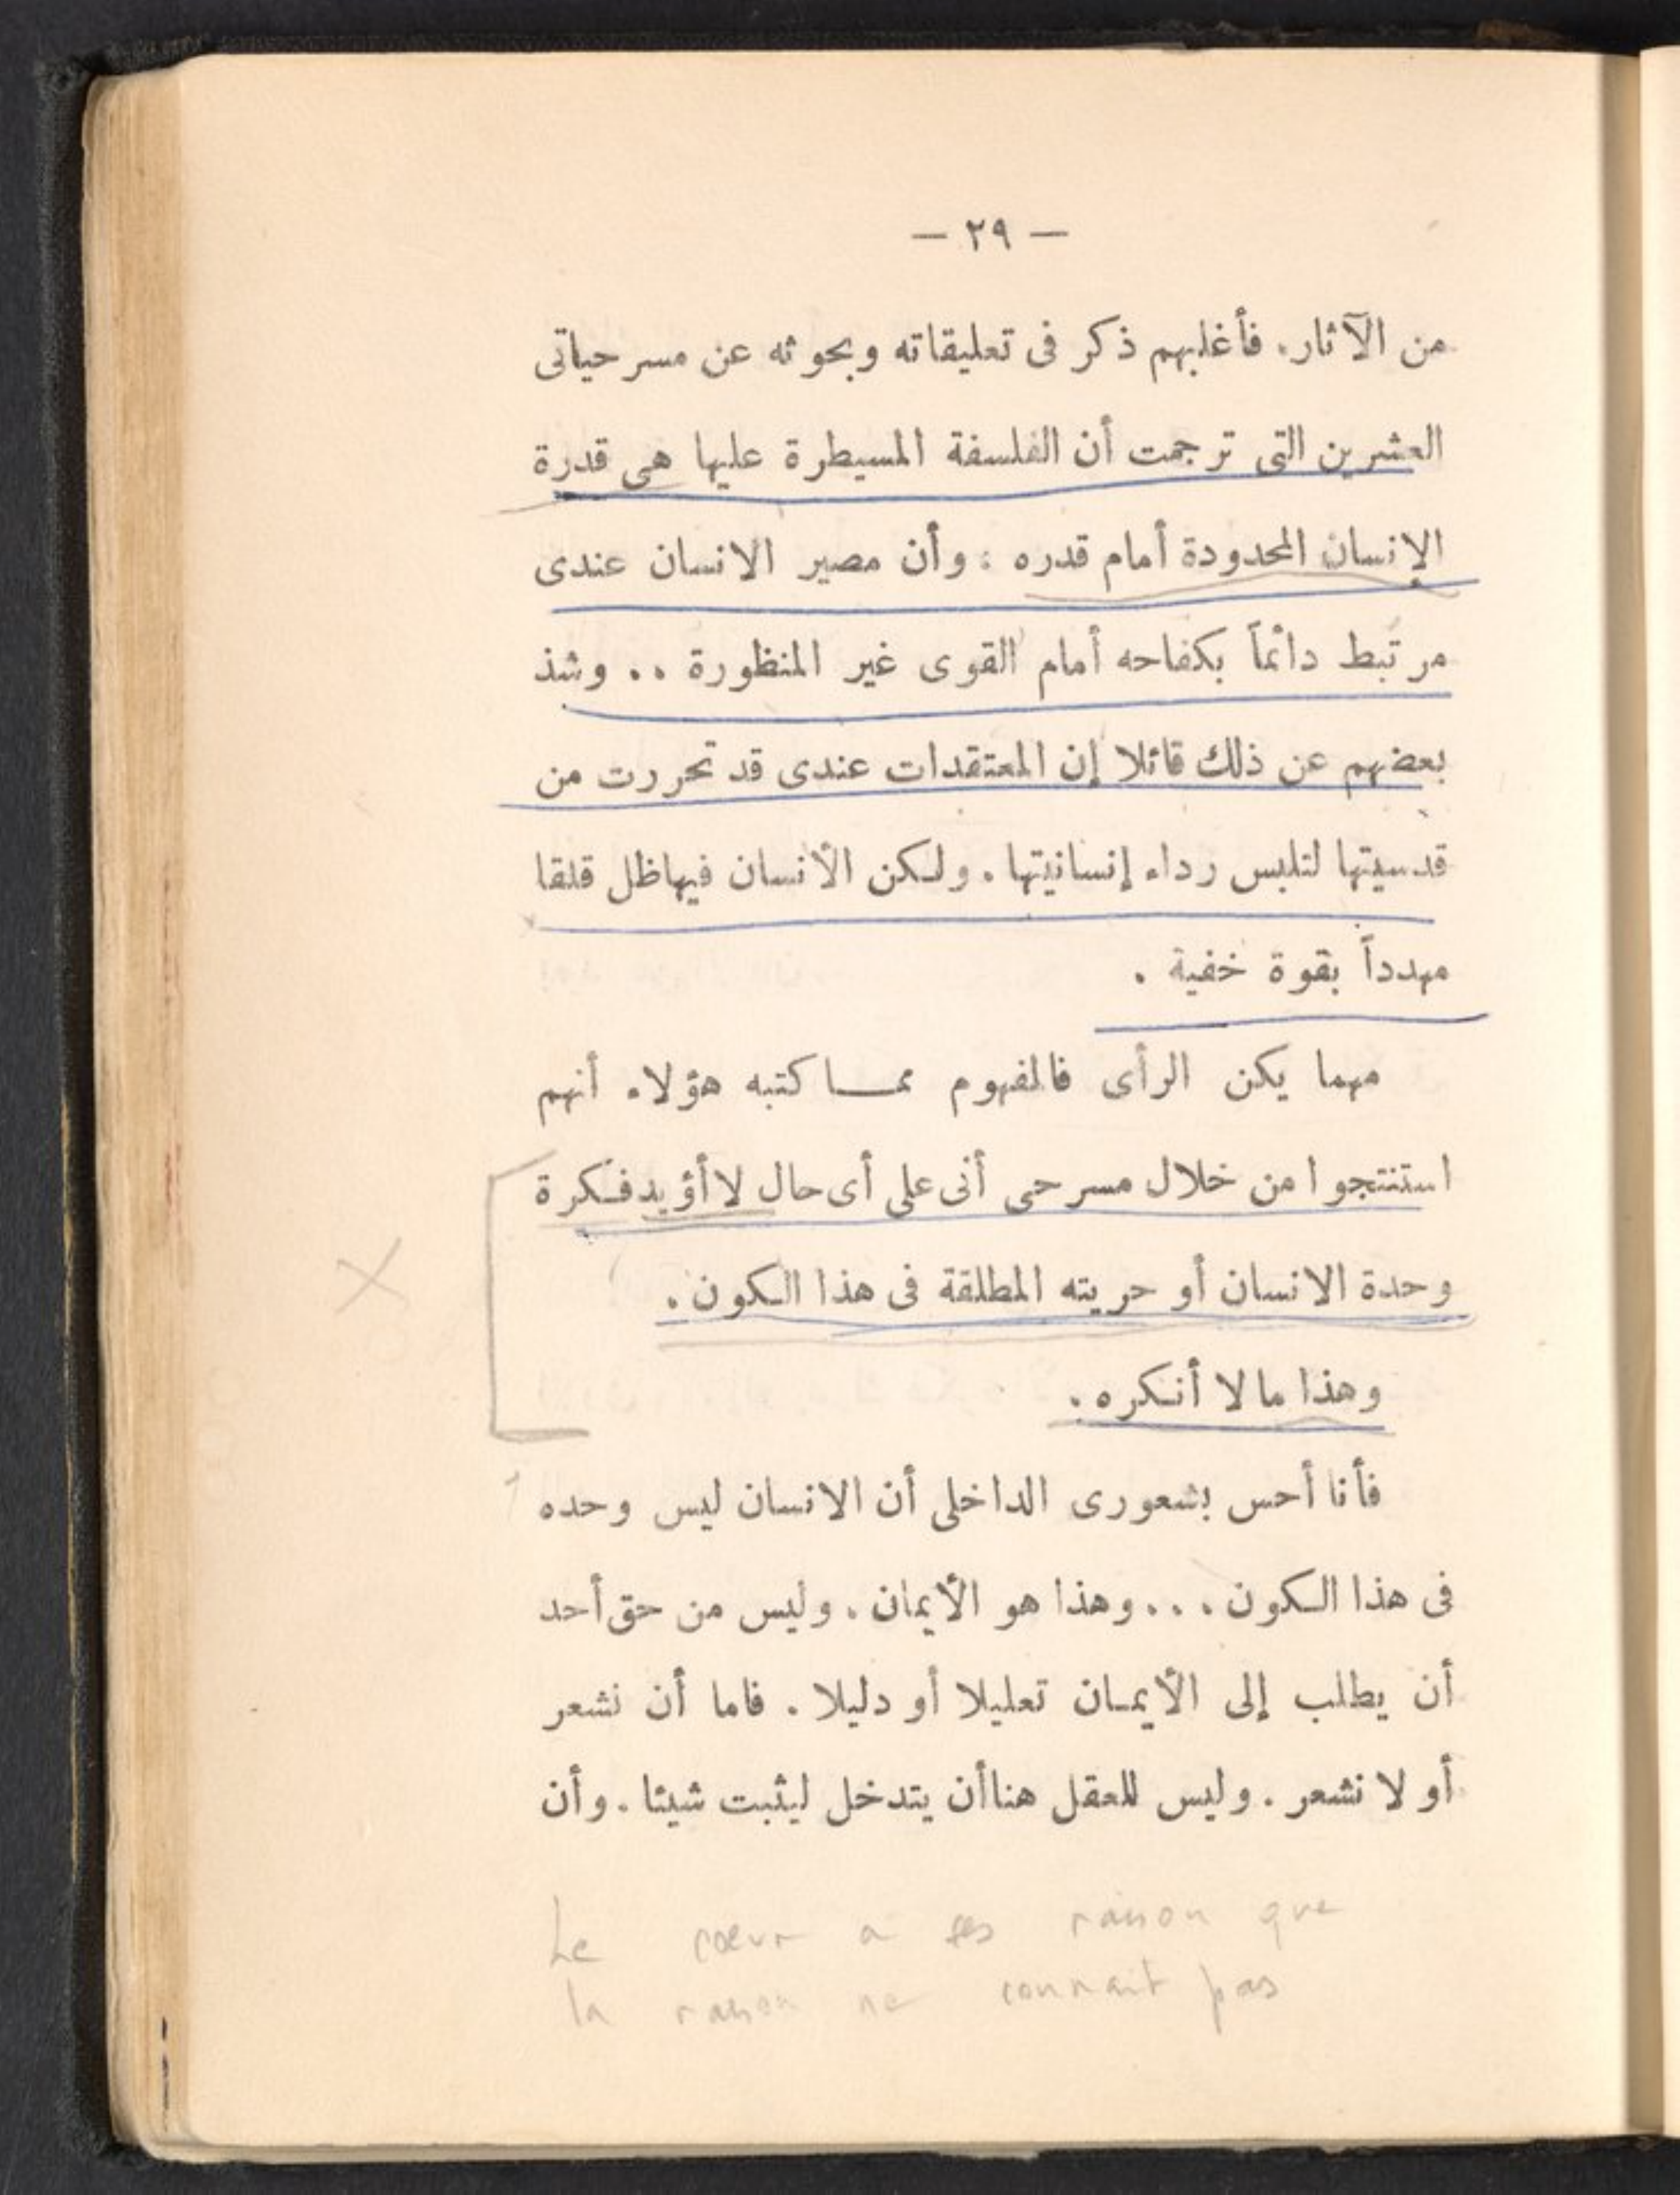 — ٢٩ —
من الآثار. فأغلبهم ذكر فى تعليقاته وبحوثه عن مسرحياتى
العشرين التى ترجمت أن الفلسفة المسيطرة عليها هى قدرة
الإنسان المحدودة أمام قدره : وأن مصير الانسان عندى
مرتبط دائماً بكفاحه أمام القوى غير المنظورة .. وشذ
بعضهم عن ذلك قائلا إن المعتقدات عندى قد تحررت من
قدسيتها لتلبس رداء إنسانيتها . ولكن الأنسان فيها ظل قلقا
مهدداً بقوة خفية .
مهما يكن الرأى فالمفهوم ممـا كتبه هؤلاء أنهم
استنتجوا من خلال مسرحى أنى على أى حال لا أؤيد فكرة
وحدة الانسان أو حريته المطلقة فى هذا الكون .
وهذا ما لا أنكره .
فأنا أحس بشعورى الداخلى أن الانسان ليس وحده
فى هذا الكون ... وهذا هو الأيمان . وليس من حق أحد
أن يطلب إلى الأيمـان تعليلا أو دليلا . فاما أن نشعر
أو لا نشعر . وليس للعقل هنا أن يتدخل ليثبت شيئا . وأن
Le cœur a ses raison que
la raison ne connait pas